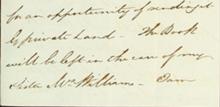 for an opportunity of sending it
by private hand — The Book
will be left in the care of my
Sister Mrs Williams — I am